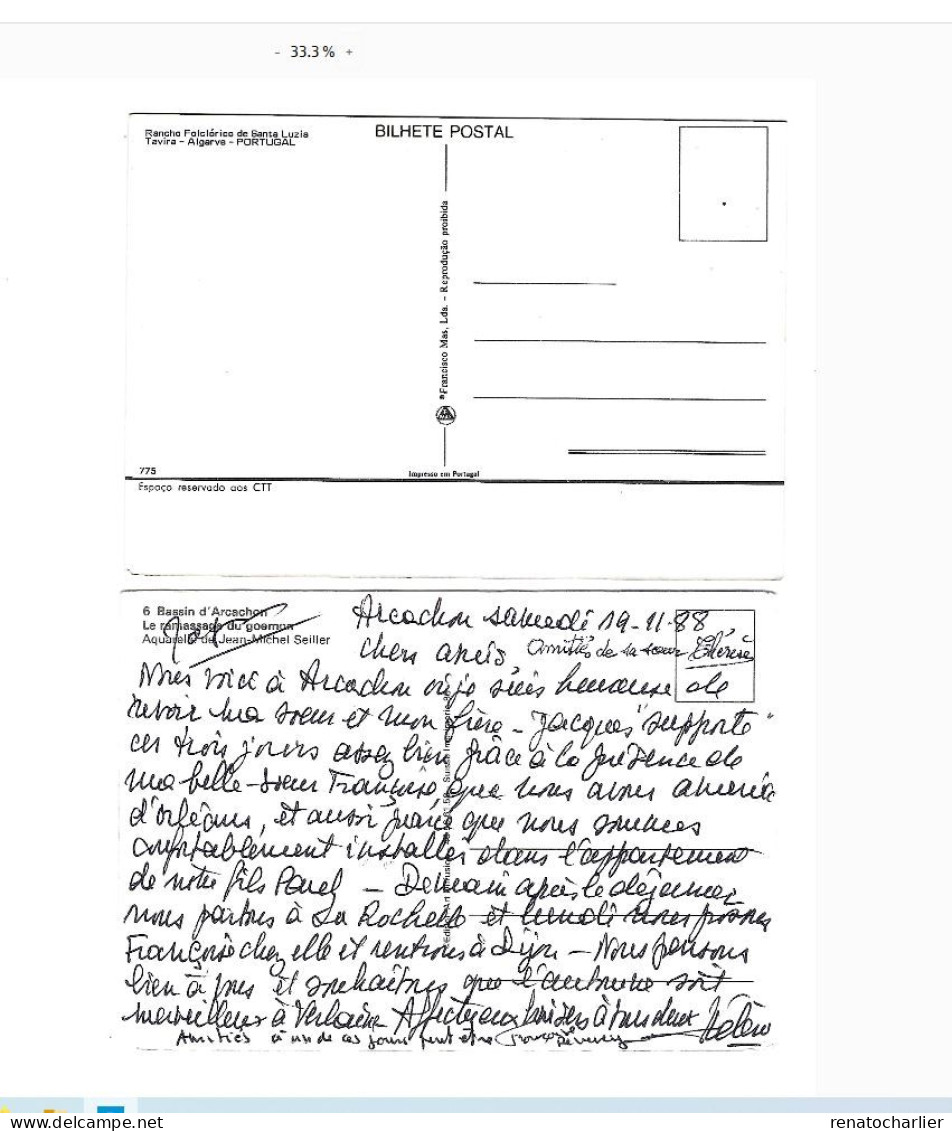 - 33.3 % +
Rancho Folclórico de Santa Luzia
Tavira - Algarve - PORTUGAL
BILHETE POSTAL
Francisco Mas, Lda. - Reprodução proibida
775
Impresso em Portugal
Espaço reservado aos CTT
6 Bassin d'Arcachon
Le ramassage du goemon
Aquarelle de Jean-Michel Seiller
Arcachon samedi 19-11-88,
Chers amis, Amitiés de la sœur Thérèse
Nous voici à Arcachon où je suis heureuse de
revoir ma sœur et mon frère - Jacques "supporte"
ces trois jours assez bien grâce à la présence de
ma belle-sœur Françoise, que nous avons amenée
d'Orléans, et aussi parce que nous sommes
confortablement installés dans l'appartement
de notre fils - Demain après le déjeuner
nous partons à La Rochelle et lundi nous
Françoise chez elle et rentrons à Dijon - Nous pensons
bien à vous et souhaitons que l'automne soit
merveilleux à Verlaine Affectueux baisers à tous deux Hélène
Amitiés à un de ces jours peut être
renatocharlier